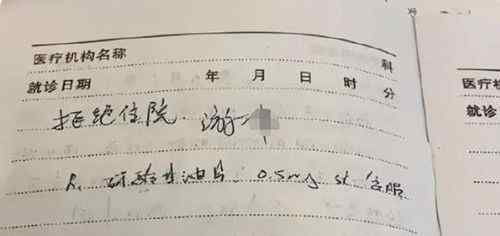 医疗机构名称 科
就诊日期 年 月 日 时 分
拒绝住院. 游
R. 硝酸甘油片 0.5mg st 含服
医疗机
就诊